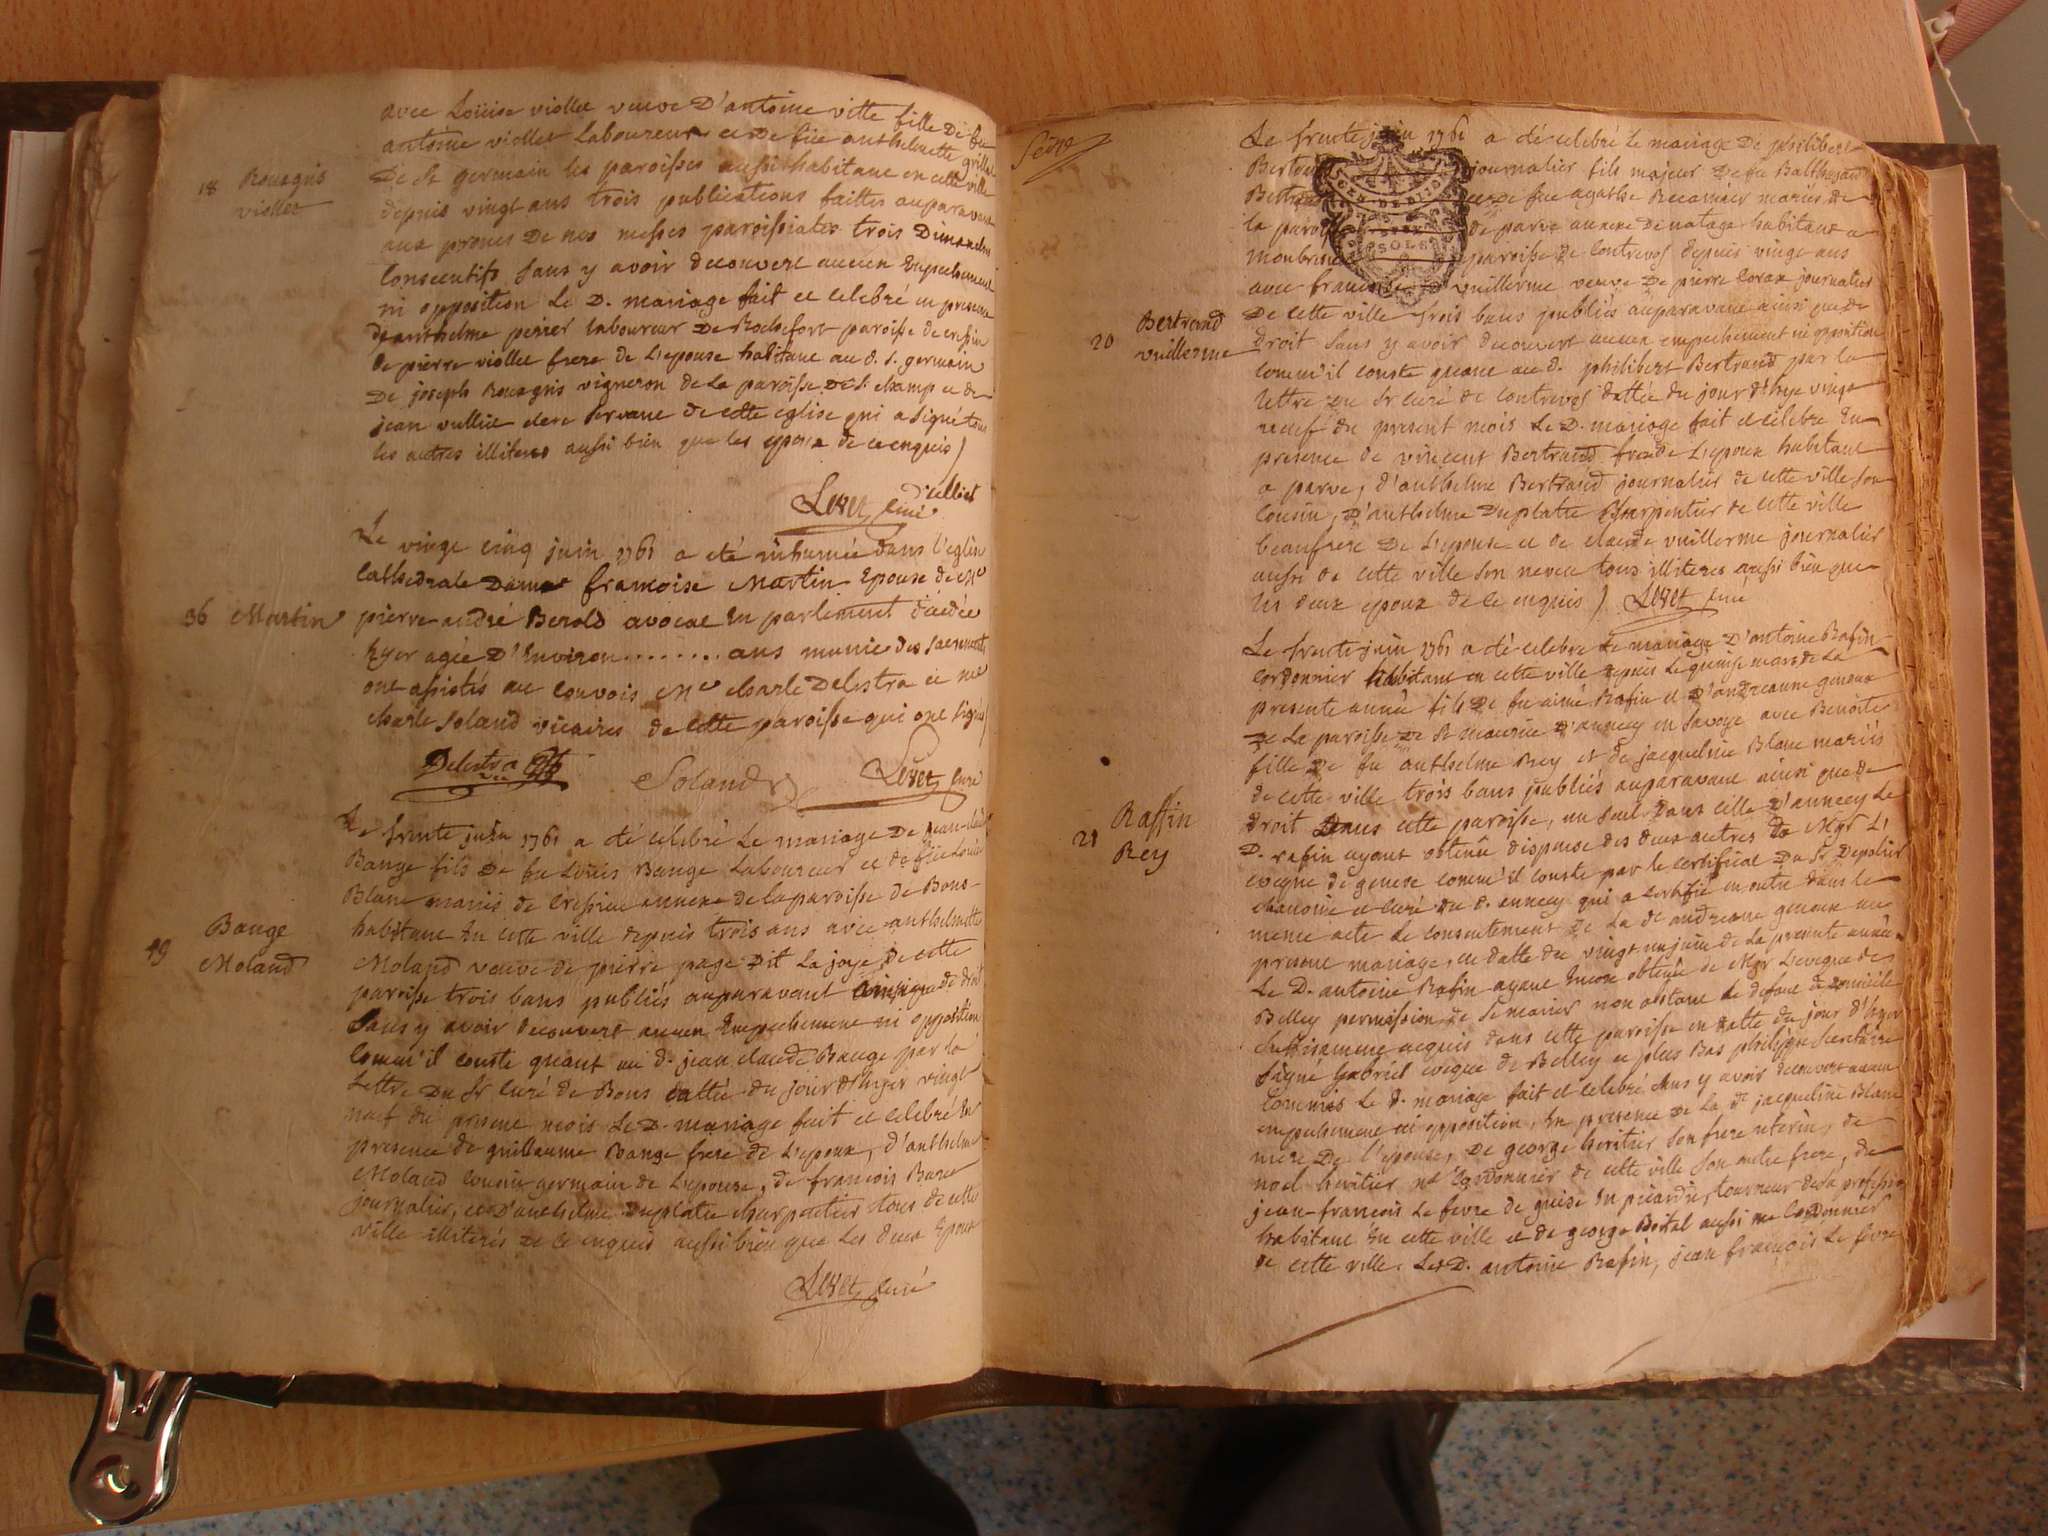 avec Loüise viollet veuve D'antoine ville fille De feu
antoine viollet Laboureur et De füe anthelmette grillet
De St germain les paroisses aussi habitant en cette ville
18 Rousgris
viollet
depuis vingt ans trois publications faittes auparavant
aux prones De nos messes paroissiales trois Dimanches
Consecutifs sans y avoir decouvert aucun Empechement
ni opposition Le D. mariage fait et celebré en presence
d'anthelme perier laboureur De Rochefort paroisse de
de pierre viollet frere de L'epouse habitant au d. St. germain
De joseph Rousgris vigneron de La paroisse De St. champ et de
jean vulliet clerc servant de cette eglise qui a signé tous
les autres illiteres aussi bien que les epoux de ce enquis)
Vulliet
Leret curé
Le vingt cinq juin 1761 a eté inhumée dans l'eglise
Cathedrale Dame francoise Martin Epouse de Me
36 Martin
pierre andré Berold avocat En parlement décédée
hyer agée D'Environ........ans munie des sacrements
ont assistés au convois Mre charle Delestra et me
charle Soland vicaires de cette paroisse qui ont signés
Delestra vic Soland Leret curé
Le trente juin 1761 a eté celebré Le mariage De jean-claude
Bange fils De feu Loüis Bange Laboureur et de füe Loüise
Blanc mariés de Cressieu annexe de la paroisse de Bons
19 Bange
Moland
habitant En cette ville depuis trois ans avec anthelmette
Moland veuve de pierre page Dit La joye De cette
paroisse trois bans publiés auparavant ainsi que de droit
Sans y avoir decouvert aucun Empechement ni opposition
Comm'il conste quant au d. jean claude Bange par la
Lettre Du Sr Curé de Bons dattée du jour d'hyer vingt
neuf du present mois Le D. mariage fait et celebré En
presence de guillaume Bange frere de L'epoux, d'anthelme
Moland cousin germain de L'epouse, de francois
journalier, et D'anthelme Duplatre charpentier tous de cette
ville illiterés De ce enquis aussi bien que Les deux Epoux
Leret curé
Le trente juin 1761 a eté celebré le mariage De philibert
Bertrand journalier fils majeur De feu Balthazard
Bertrand et de fue agathe Recamier mariés de
la paroisse de parve annexe de natage habitant a
paroisse de Contrevos depuis vingt ans
avec francoise vuillerme veuve De pierre Corax journalier
20 Bertrand
vuillerme
De cette ville trois bans publiés auparavant ainsi que de
droit sans y avoir decouvert aucun empechement ni opposition
Comm'il conste quant au d. philibert Bertrand par la
lettre Du Sr curé de Contrevos dattée du jour d'hyer vingt
neuf du present mois Le D. mariage fait et celebré En
presence de vincent Bertrand frere de L'epoux habitant
a parve, d'anthelme Bertrand journalier de cette ville son
Cousin, D'anthelme Duplatre Charpentier de cette ville
beaufrere De L'epouse et de claude vuillerme journalier
aussi de cette ville son neveu tous illiteres aussi bien que
les deux epoux de ce enquis) Leret curé
Le trente juin 1761 a eté celebré le mariage D'antoine Rafin
Cordonnier habitant en cette ville depuis Le quinze mars de La
presente année fils De feu aimé Rafin et D'andreanne genoux
De La paroisse De St maurice D'annecy en Savoye avec Benoite
fille De feu anthelme Rey et de jacqueline Blanc mariés
de cette ville trois bans publiés auparavant ainsi que de
21 Raffin
Rey
droit Dans cette paroisse, un seul dans celle D'annecy Le
D. rafin ayant obtenüe dispense des deux autres de Mgr L'
eveque de geneve comm'il conste par le certificat Du Sr Depolier
chanoine et curé du d. annecy qui a certifié en outre dans le
meme acte Le consentement de La de andreane genoux au
present mariage, en datte du vingt un juin de La presente année
Le D. antoine Rafin ayant Encore obtenüe de Mgr L'eveque de
Belley permission de se marier non obstant Le defaut de domicile
suffisament acquis dans cette paroisse en datte du jour d'hyer
signé Gabriel eveque de Belley et plus Bas philippe secretaire
Commis Le d. mariage fait et celebré sans y avoir decouvert aucun
empechement ni opposition, En presence De La de jacqueline Blanc
mere De l'epouse, De george heritier son frere uterin, de
noel heritier me Cordonnier de cette ville son autre frere, de
jean-francois Le fevre de guise En picardie, tourneur de sa profession
habitant En cette ville et de george Bottal aussi me Cordonnier
de cette ville. Les D. antoine Rafin, jean françois Le fevre